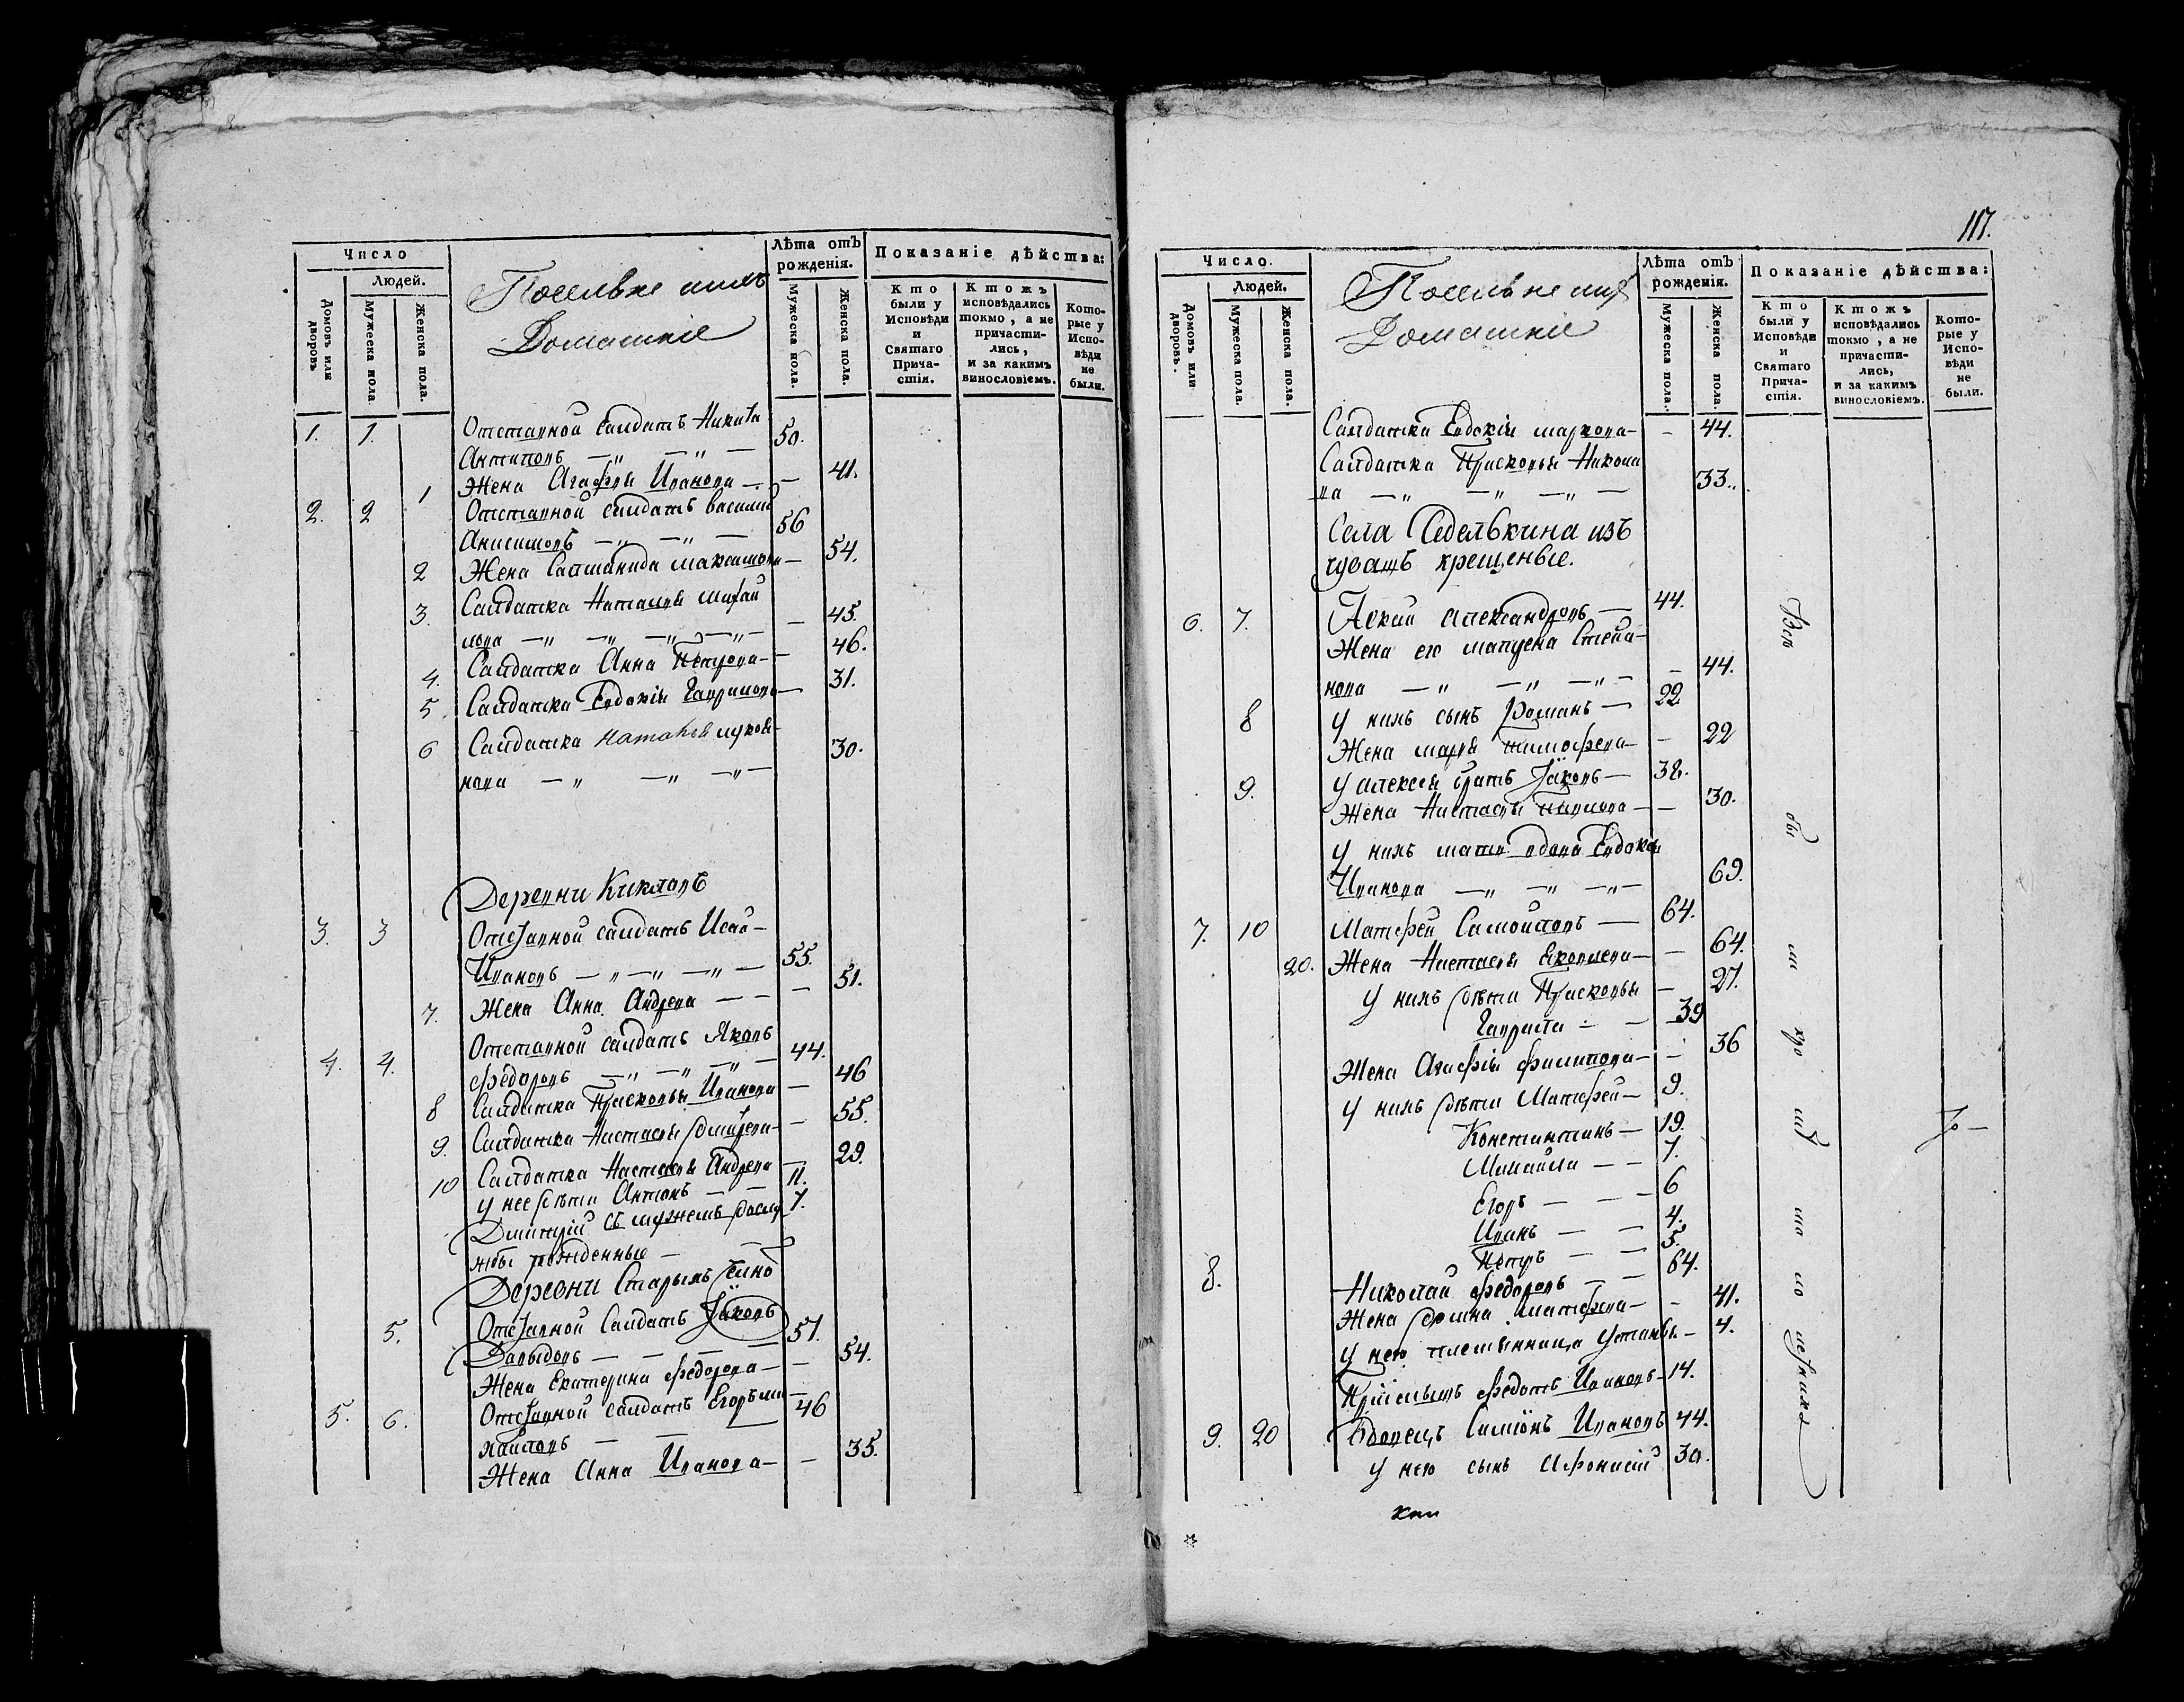 Число
Людей.
Домовъ или дворовъ.
Мужеска пола.
Женска пола.
Домашніе
Лѣта отъ рожденія.
Мужеска пола.
Женска пола.
Показаніе дѣйства:
Кто были у Исповѣди и Святаго Прича-стія.
Ктожъ исповѣдались токмо, а не причасти-лись, и за какимъ винословіемъ.
Кото-рые у Испо-вѣди не были.
1. 1. Отставной салдатъ Никита
Антиповъ 50.
1 Жена Агафья Иванова 41.
2. 2 Отставной салдатъ василий
56
2 Жена максимова 54.
3. Салдатка Наталья михай
лова 45.
4. Салдатка Анна Петрова 46.
5. Салдатка Евдокія Гаврилова 31.
6 Салдатка Наталья
нова 30.
Деревни
3. 3 Отставной салдатъ Исай
Ивановъ 55.
7. Жена Анна Андрева 51.
4. 4. Отставной салдатъ Яковъ
Федоровъ 44.
8 Салдатка Прасковья Иванова 46
9. Салдатка Настасья 55.
10 Салдатка Настасья Андрева 29.
у нее дѣти Антонъ 11.
Дмитрій съ мужемъ 7.
рожденные
Деревни Старыхъ
5. Отставной Салдатъ Яковъ
Давыдовъ 57.
Жена Екатерина Федорова 54.
5. 6. Отставной салдатъ Егоръ ми
хайловъ 46
Жена Анна Иванова 35.
117.
Число.
Людей.
Домовъ или дворовъ.
Мужеска пола.
Женска пола.
Домашніе
Лѣта отъ рожденія.
Мужеска пола.
Женска пола.
Показаніе дѣйства:
Кто были у Исповѣди и Святаго Прича-стія.
Ктожъ исповѣдались токмо, а не причасти-лись, и за какимъ винословіемъ.
Кото-рые у Испо-вѣди не были.
Салдатка Евдокія маркова 44.
Салдатка Прасковья Никола
ва 33.
Села Седелькина изъ
чувашъ крещеные.
6. 7. Александровъ 44.
Жена его матрена Степа-
нова 44.
8 у нихъ сынъ Романъ 22
Жена марья тимофева 22
9. у алексея братъ Яковъ 38.
Жена Настасья 30.
у нихъ мати вдова Евдокія
Иванова 69.
7. 10 Матфей Самойловъ 64.
20. Жена Настасья 64.
у нихъ дѣти Прасковья 27.
Гаврила 39
Жена Агафія филипова 36
у нихъ дѣти Матфей 9.
Константинъ 19.
Михайла 7.
Егоръ 6
Иванъ 4.
Петръ 5.
8. Николай Федоровъ 64.
Жена матфева 41.
у него племянница 4.
Федотъ Ивановъ 14.
9. 20 Вдовецъ Симіонъ Ивановъ 44.
у него сынъ Афонасій 30.